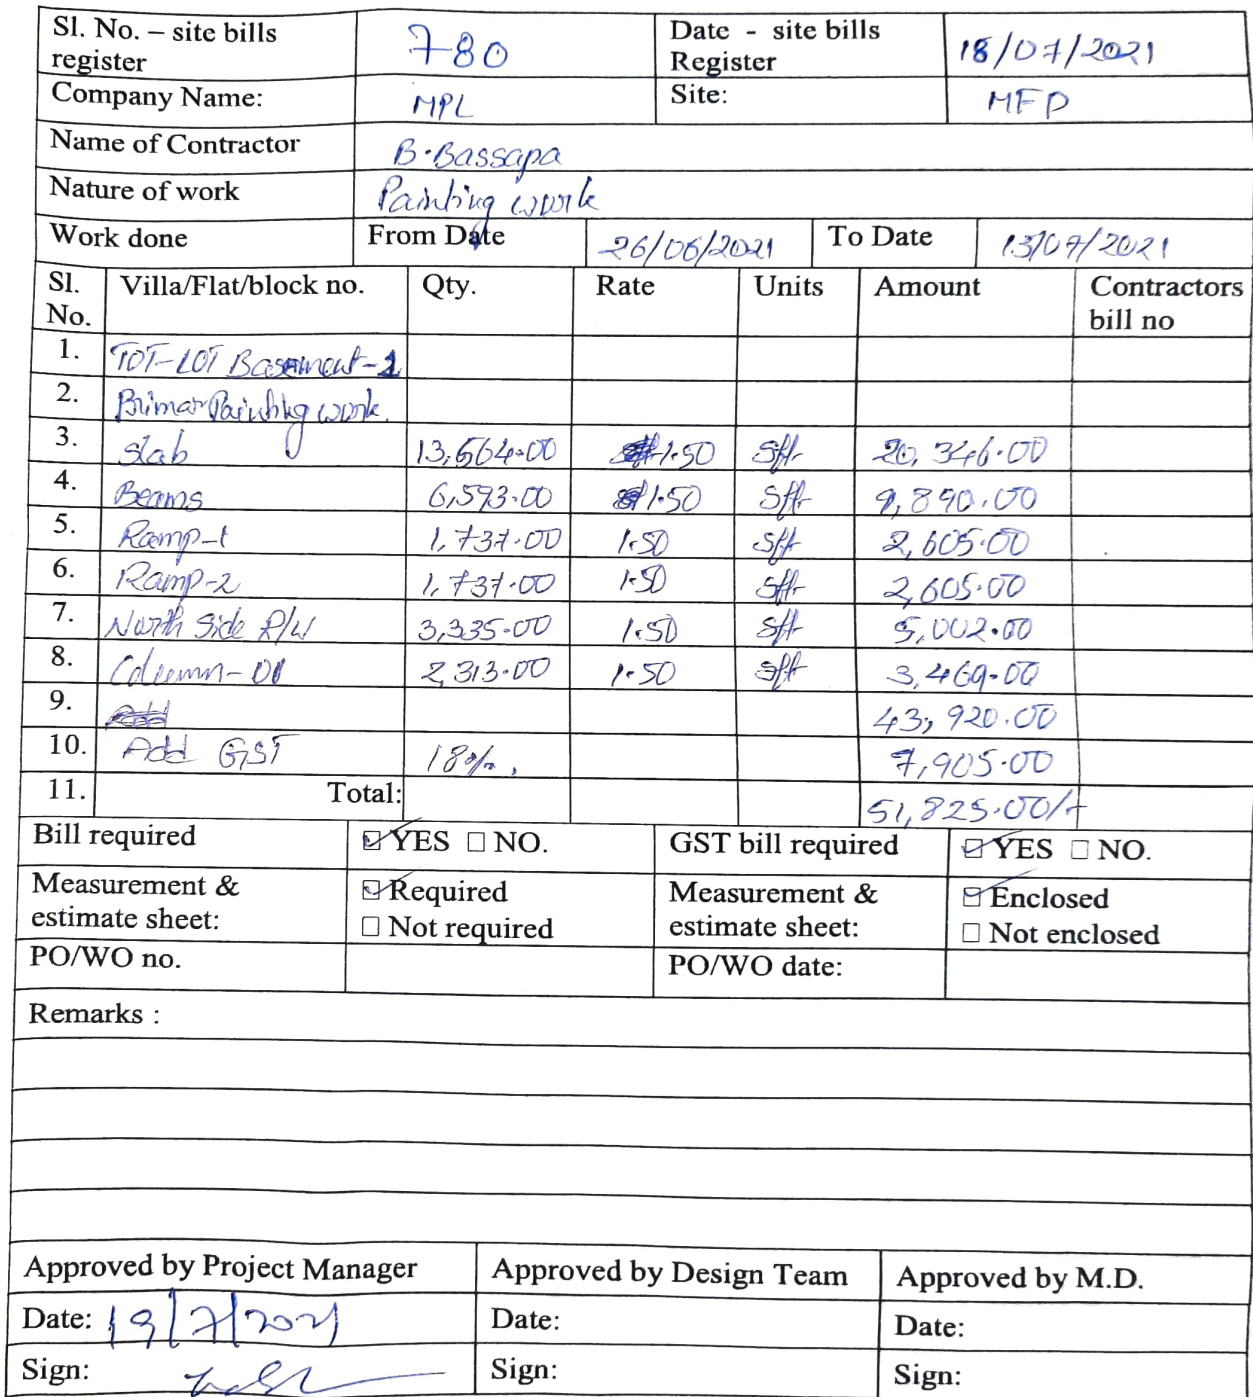 Sl. No. – site bills register 780 Date - site bills Register 18/07/2021
Company Name: MPL Site: MFP
Name of Contractor B.Bassapa
Nature of work Painting work
Work done From Date 26/06/2021 To Date 13/07/2021
Sl. No. Villa/Flat/block no. Qty. Rate Units Amount Contractors bill no
1. TOT-LOT Basement-1
2. Primar Painting work.
3. Slab 13,564.00 1.50 Sft 20,346.00
4. Beams 6,593.00 1.50 Sft 9,890.00
5. Ramp-1 1,737.00 1.50 Sft 2,605.00
6. Ramp-2 1,737.00 1.50 Sft 2,605.00
7. North Side R/W 3,335.00 1.50 Sft 5,002.00
8. Column-01 2,313.00 1.50 Sft 3,469.00
9. 43,920.00
10. Add GST 18%. 7,905.00
11. Total: 51,825.00/-
Bill required ☑ YES ☐ NO. GST bill required ☑ YES ☐ NO.
Measurement & estimate sheet: ☑ Required ☐ Not required Measurement & estimate sheet: ☑ Enclosed ☐ Not enclosed
PO/WO no. PO/WO date:
Remarks :
Approved by Project Manager Approved by Design Team Approved by M.D.
Date: 19/7/2021 Date: Date:
Sign: Sign: Sign: